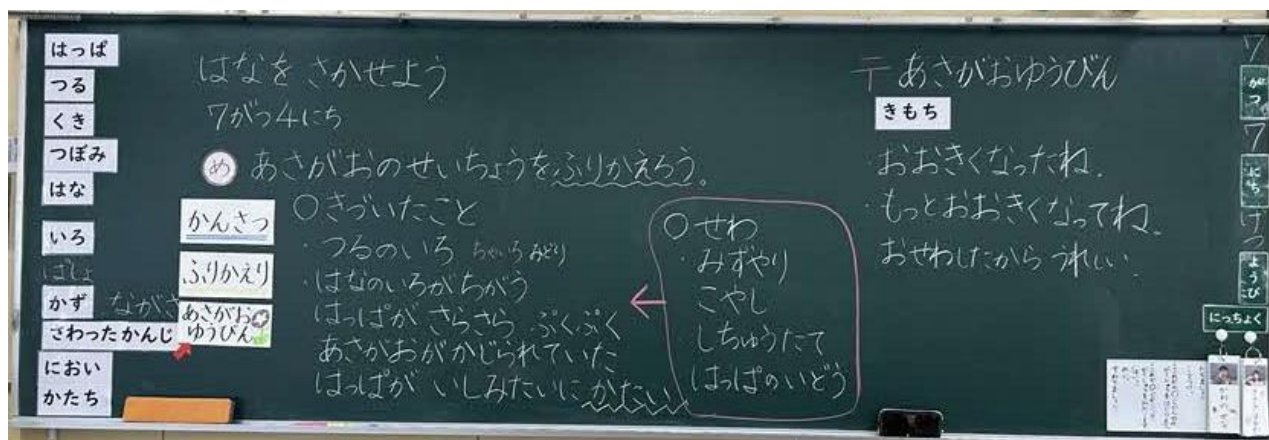 はっぱ
つる
くき
つぼみ
はな
いろ
ばしょ
かず
ながさ
さわったかんじ
におい
かたち
はなを さかせよう
7がつ4にち
め あさがおのせいちょうをふりかえろう。
かんさつ
ふりかえり
あさがお
ゆうびん
○きづいたこと
・つるのいろ ちゃいろ みどり
・はなのいろがちがう
はっぱが さらさら ぷくぷく
あさがおがかじられていた
はっぱが いしみたいに かたい
○せわ
・みずやり
こやし
しちゅうたて
はっぱのいどう
〒 あさがおゆうびん
きもち
・おおきくなったね。
・もっとおおきくなってね。
おせわしたから うれしい
7
がつ
7
にち
げつ
ようび
にっちょく